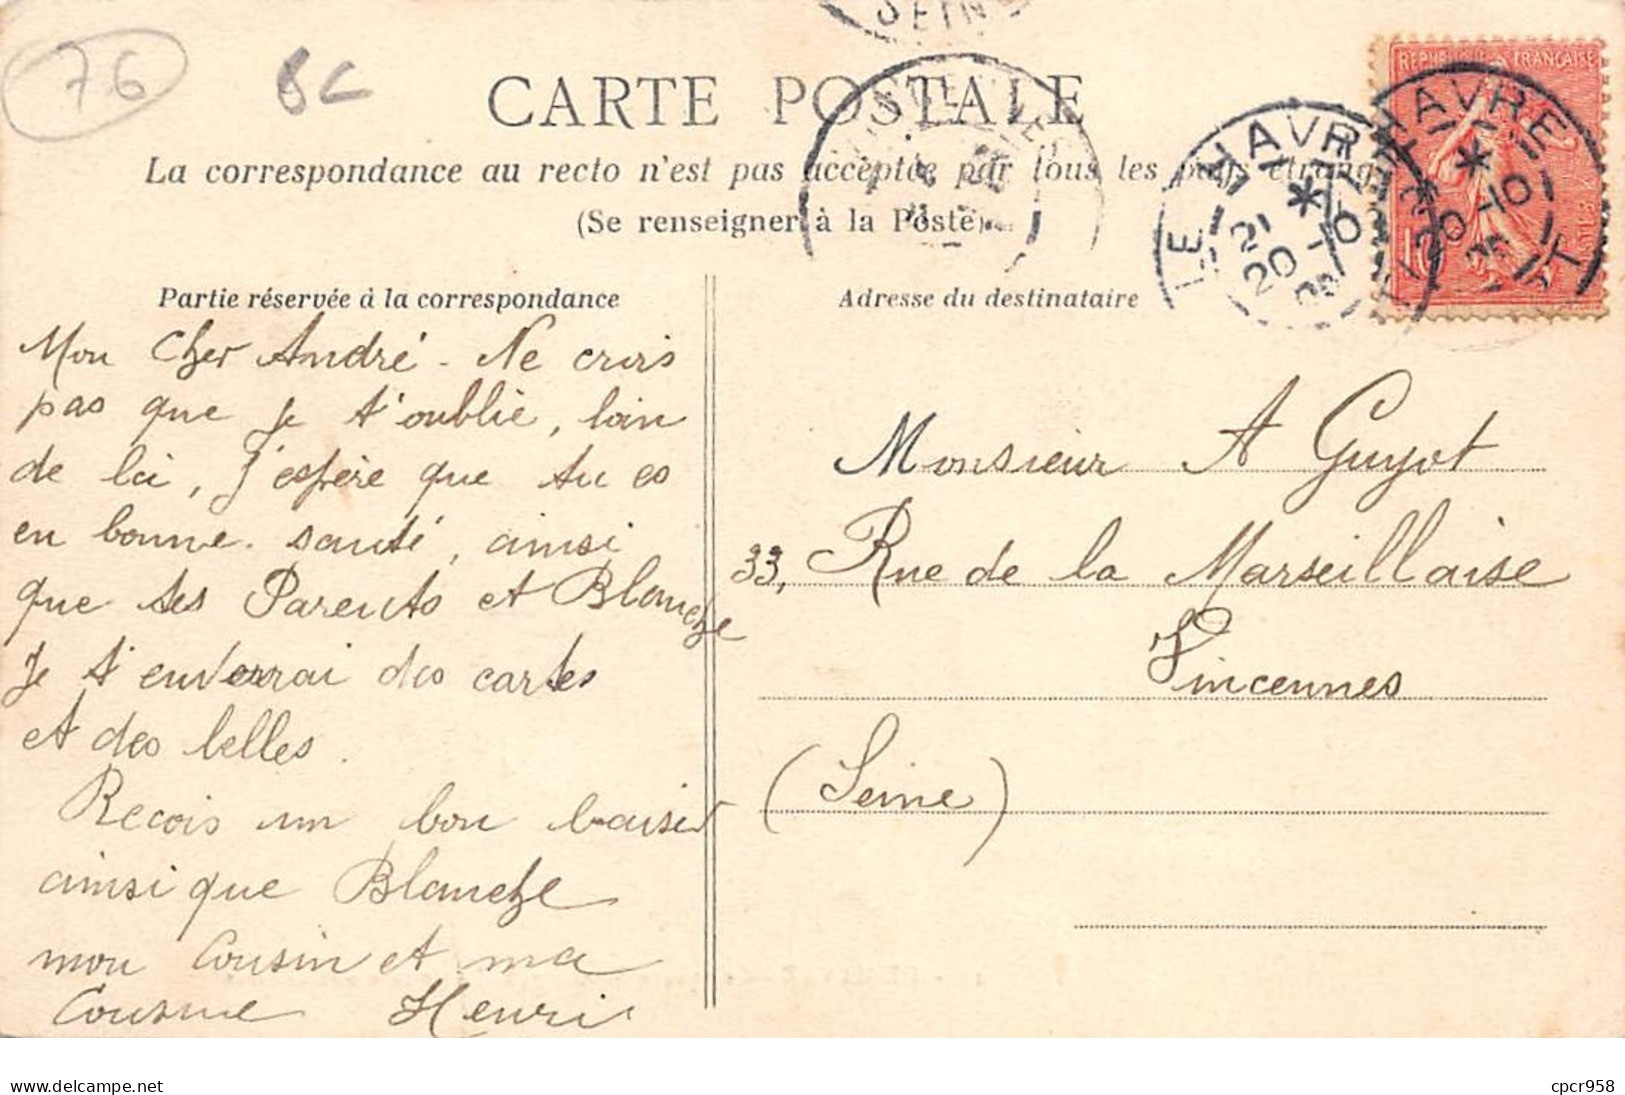 76
BC
SEINE
CARTE POSTALE
La correspondance au recto n'est pas acceptée par tous les pays étrangers
(Se renseigner à la Poste)
RÉPUBLIQUE FRANÇAISE
POSTES
10
LE HAVRE
21 * 
20 -10
LE HAVRE
*
20 -10
VINCENNES
Partie réservée à la correspondance
Mon Cher André - Ne crois
pas que je t'oublie, loin
de là, J'espère que tu es
en bonne santé, ainsi
que tes Parents et Blanche
Je t'enverrai des cartes
et des belles.
Recois un bon baiser
ainsi que Blanche
mon Cousin et ma
Cousine Henri
Adresse du destinataire
Monsieur A Guyot
33, Rue de la Marseillaise
Vincennes
(Seine)
www.delcampe.net
cpcr958